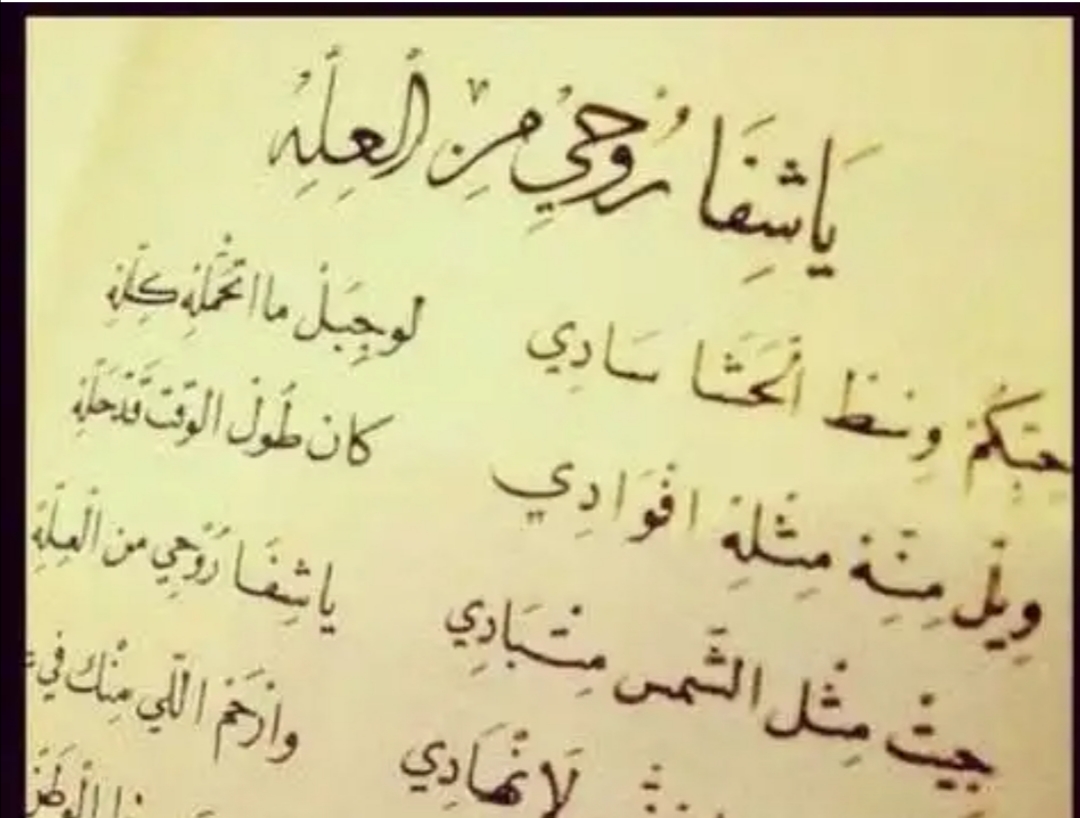 يَا شِفَا رُوحِي مِن الْعِلِّهْ
حبّكُمْ وِسْطْ الْحَشَا سَادِي لو جِبَلْ ما اتْحَمَّلِهْ كِلِّهْ
وِيْل مِنِّهْ مِثْلِهْ افْوَادِي كان طُولْ الوَقْت قَدْ حَلِّهْ
جيتْ مِثْل الشَّمس مِتْبَادِي يا شِفَا رُوْحِي من الْعِلِّهْ
لَا تْهَادِي وارْحَمْ اللّي مِنْك في